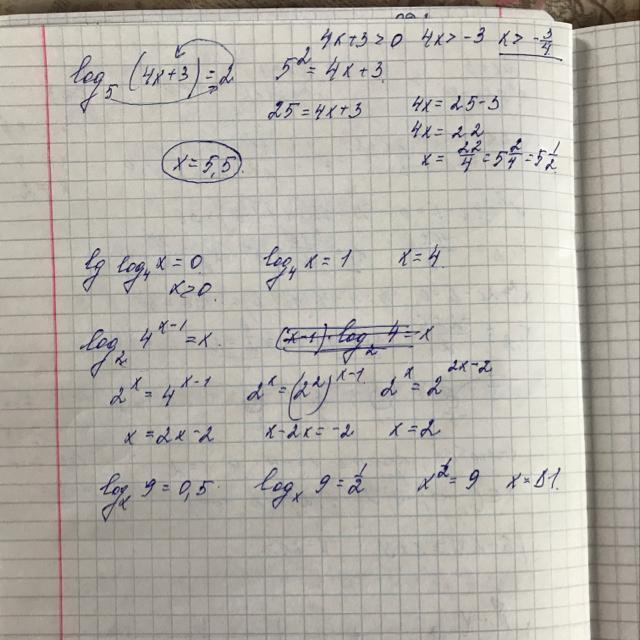 4x+3>0 4x>-3 x>-3/4
log₅ (4x+3)=2 5²=4x+3
25=4x+3 4x=25-3
4x=22
x=5,5 x=22/4=5 2/4=5 1/2
lg log₄x=0 log₄x=1 x=4
x>0
log₂ 4ˣ⁻¹=x (x-1)·log₂4=x
2ˣ=4ˣ⁻¹ 2ˣ=(2²)ˣ⁻¹ 2ˣ=2²ˣ⁻²
x=2x-2 x-2x=-2 x=2
logₓ 9=0,5 logₓ 9=1/2 x^1/2=9 x=81